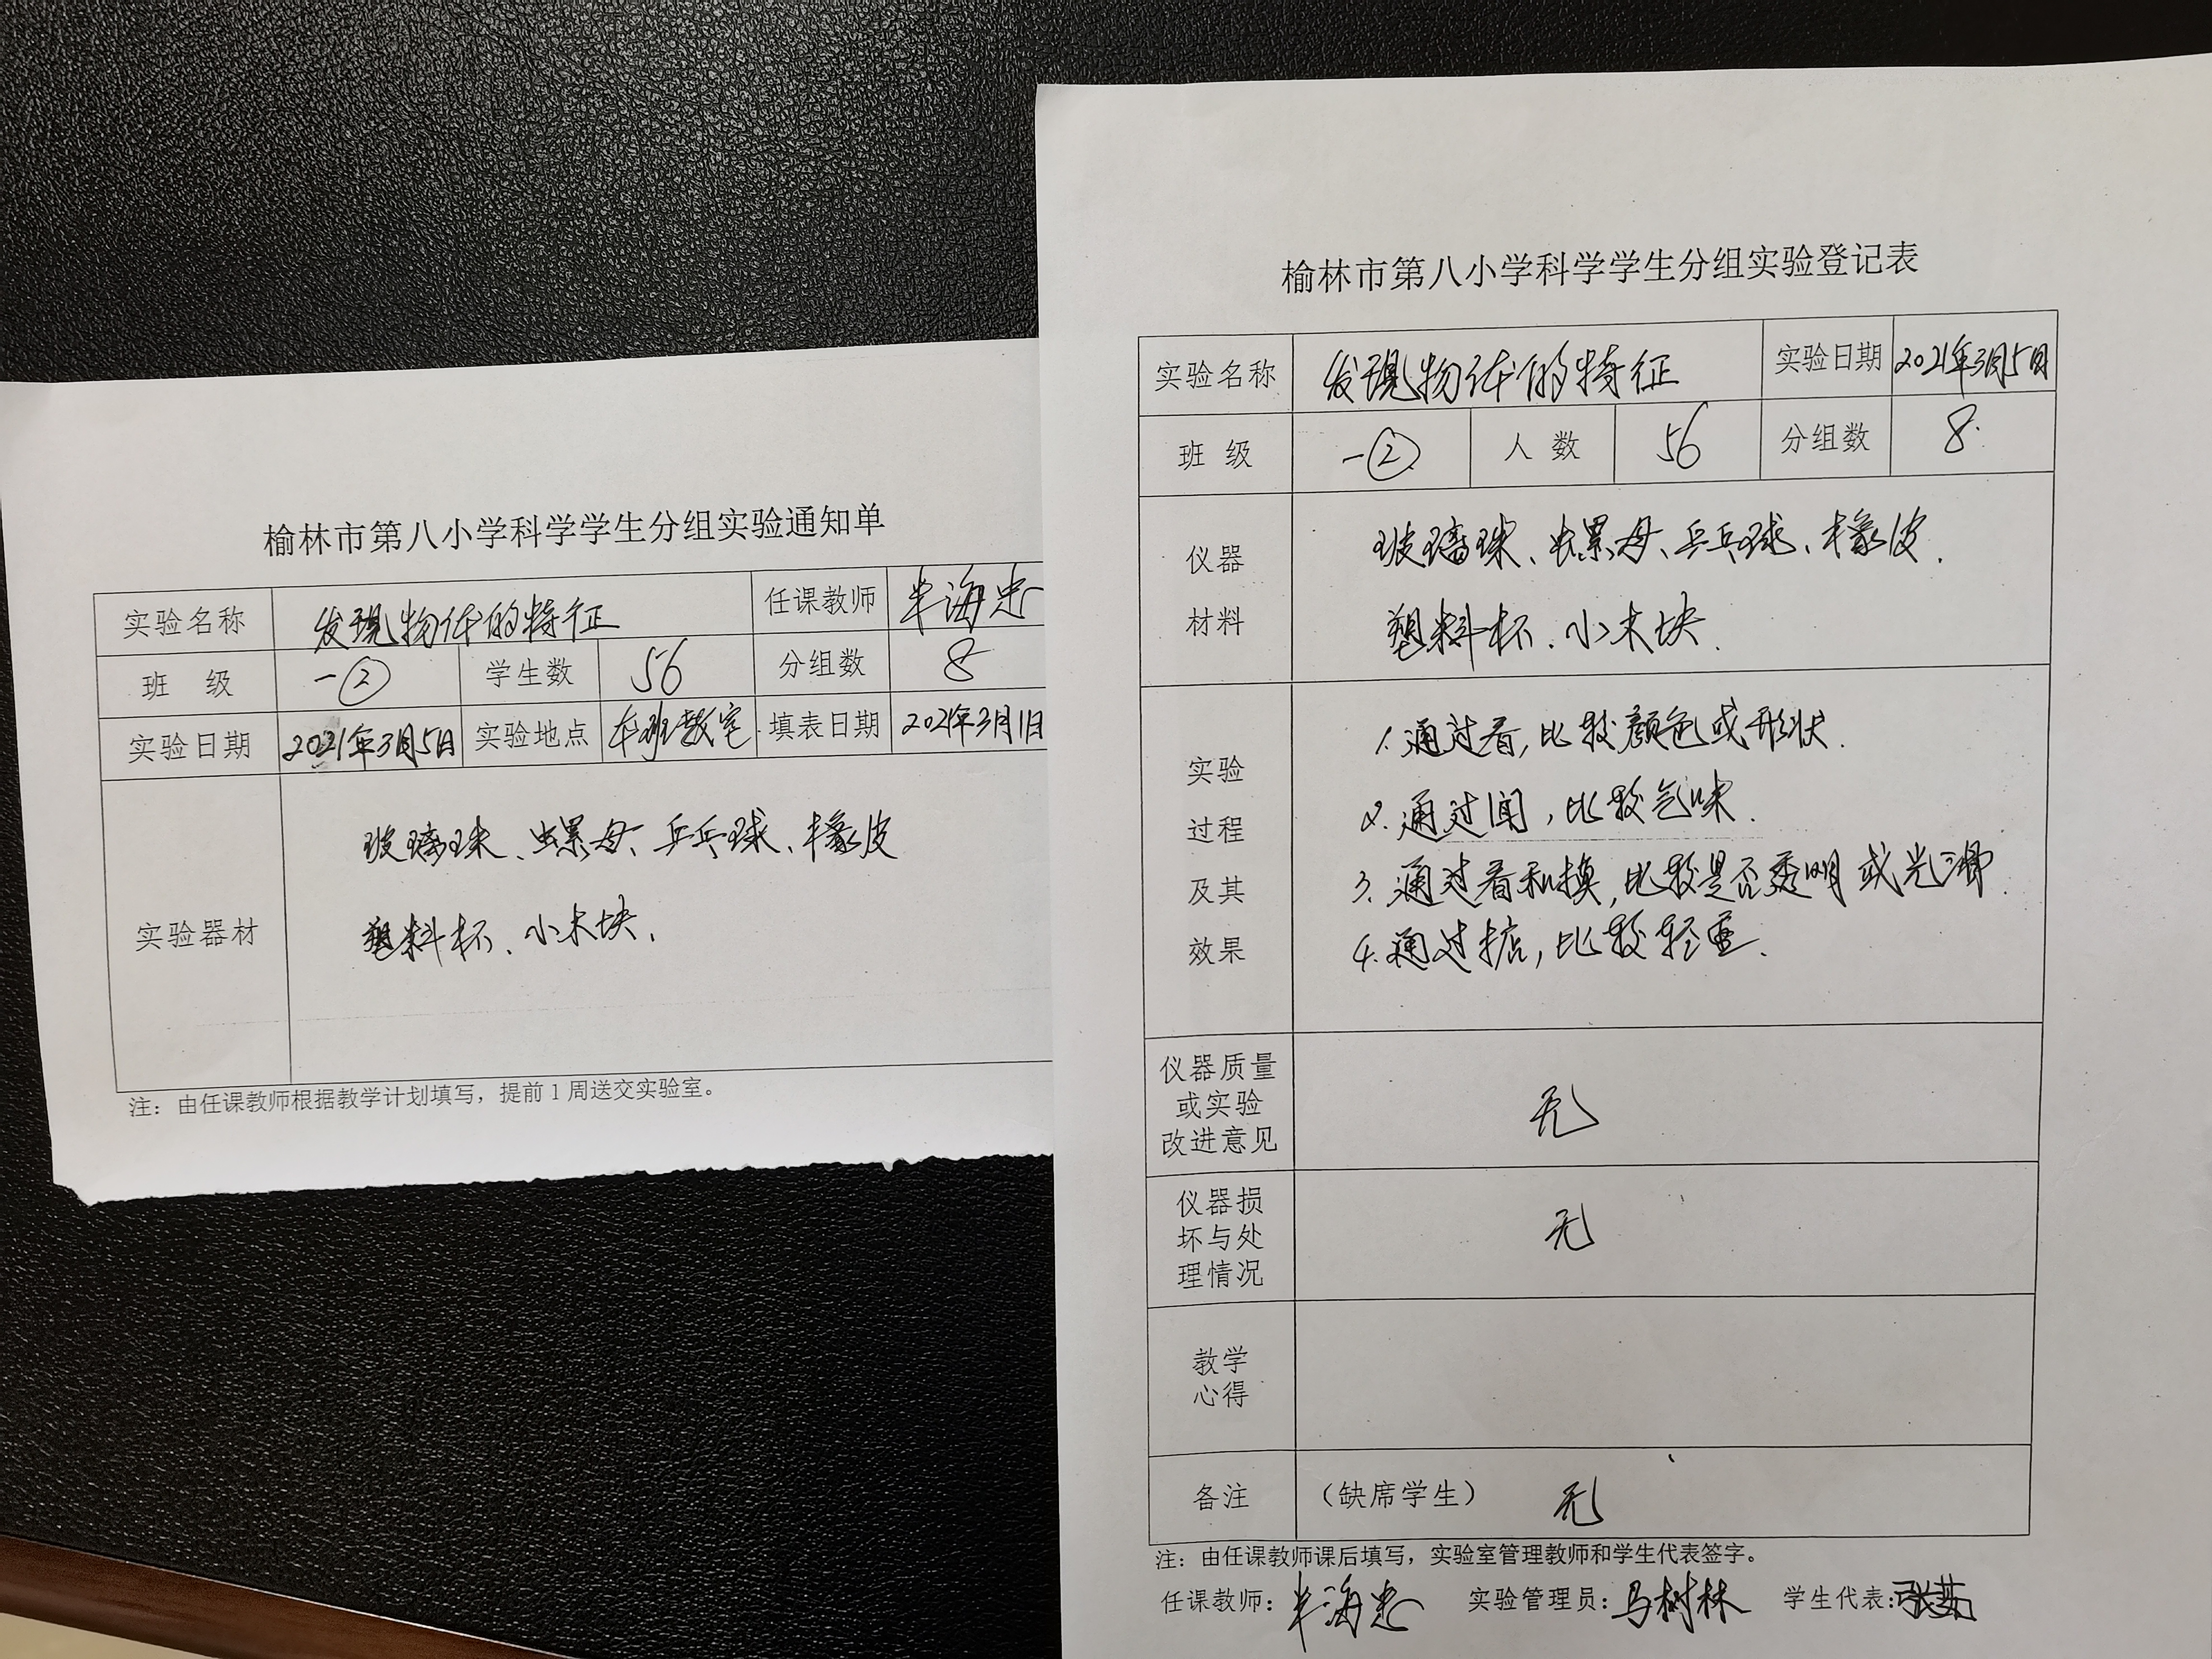 榆林市第八小学科学学生分组实验通知单
实验名称 发现物体的特征 任课教师 海忠
班 级 一② 学生数 56 分组数 8
实验日期 2021年3月5日 实验地点 本班教室 填表日期 2021年3月1日
玻璃球、螺母、乒乓球、橡皮
实验器材
塑料杯、小木块.
注：由任课教师根据教学计划填写，提前1周送交实验室。
榆林市第八小学科学学生分组实验登记表
实验名称 发现物体的特征 实验日期 2021年3月5日
班 级 一② 人 数 56 分组数 8
仪器
材料
玻璃球、螺母、乒乓球、橡皮.
塑料杯、小木块.
实验
过程
及其
效果
1.通过看,比较颜色或形状.
2.通过闻,比较气味.
3.通过看和摸,比较是否透明或光滑.
4.通过掂,比较轻重.
仪器质量
或实验
改进意见
无
仪器损
坏与处
理情况
无
教学
心得
备注 （缺席学生） 无
注：由任课教师课后填写，实验室管理教师和学生代表签字。
任课教师: 海忠 实验管理员:马树林 学生代表:张